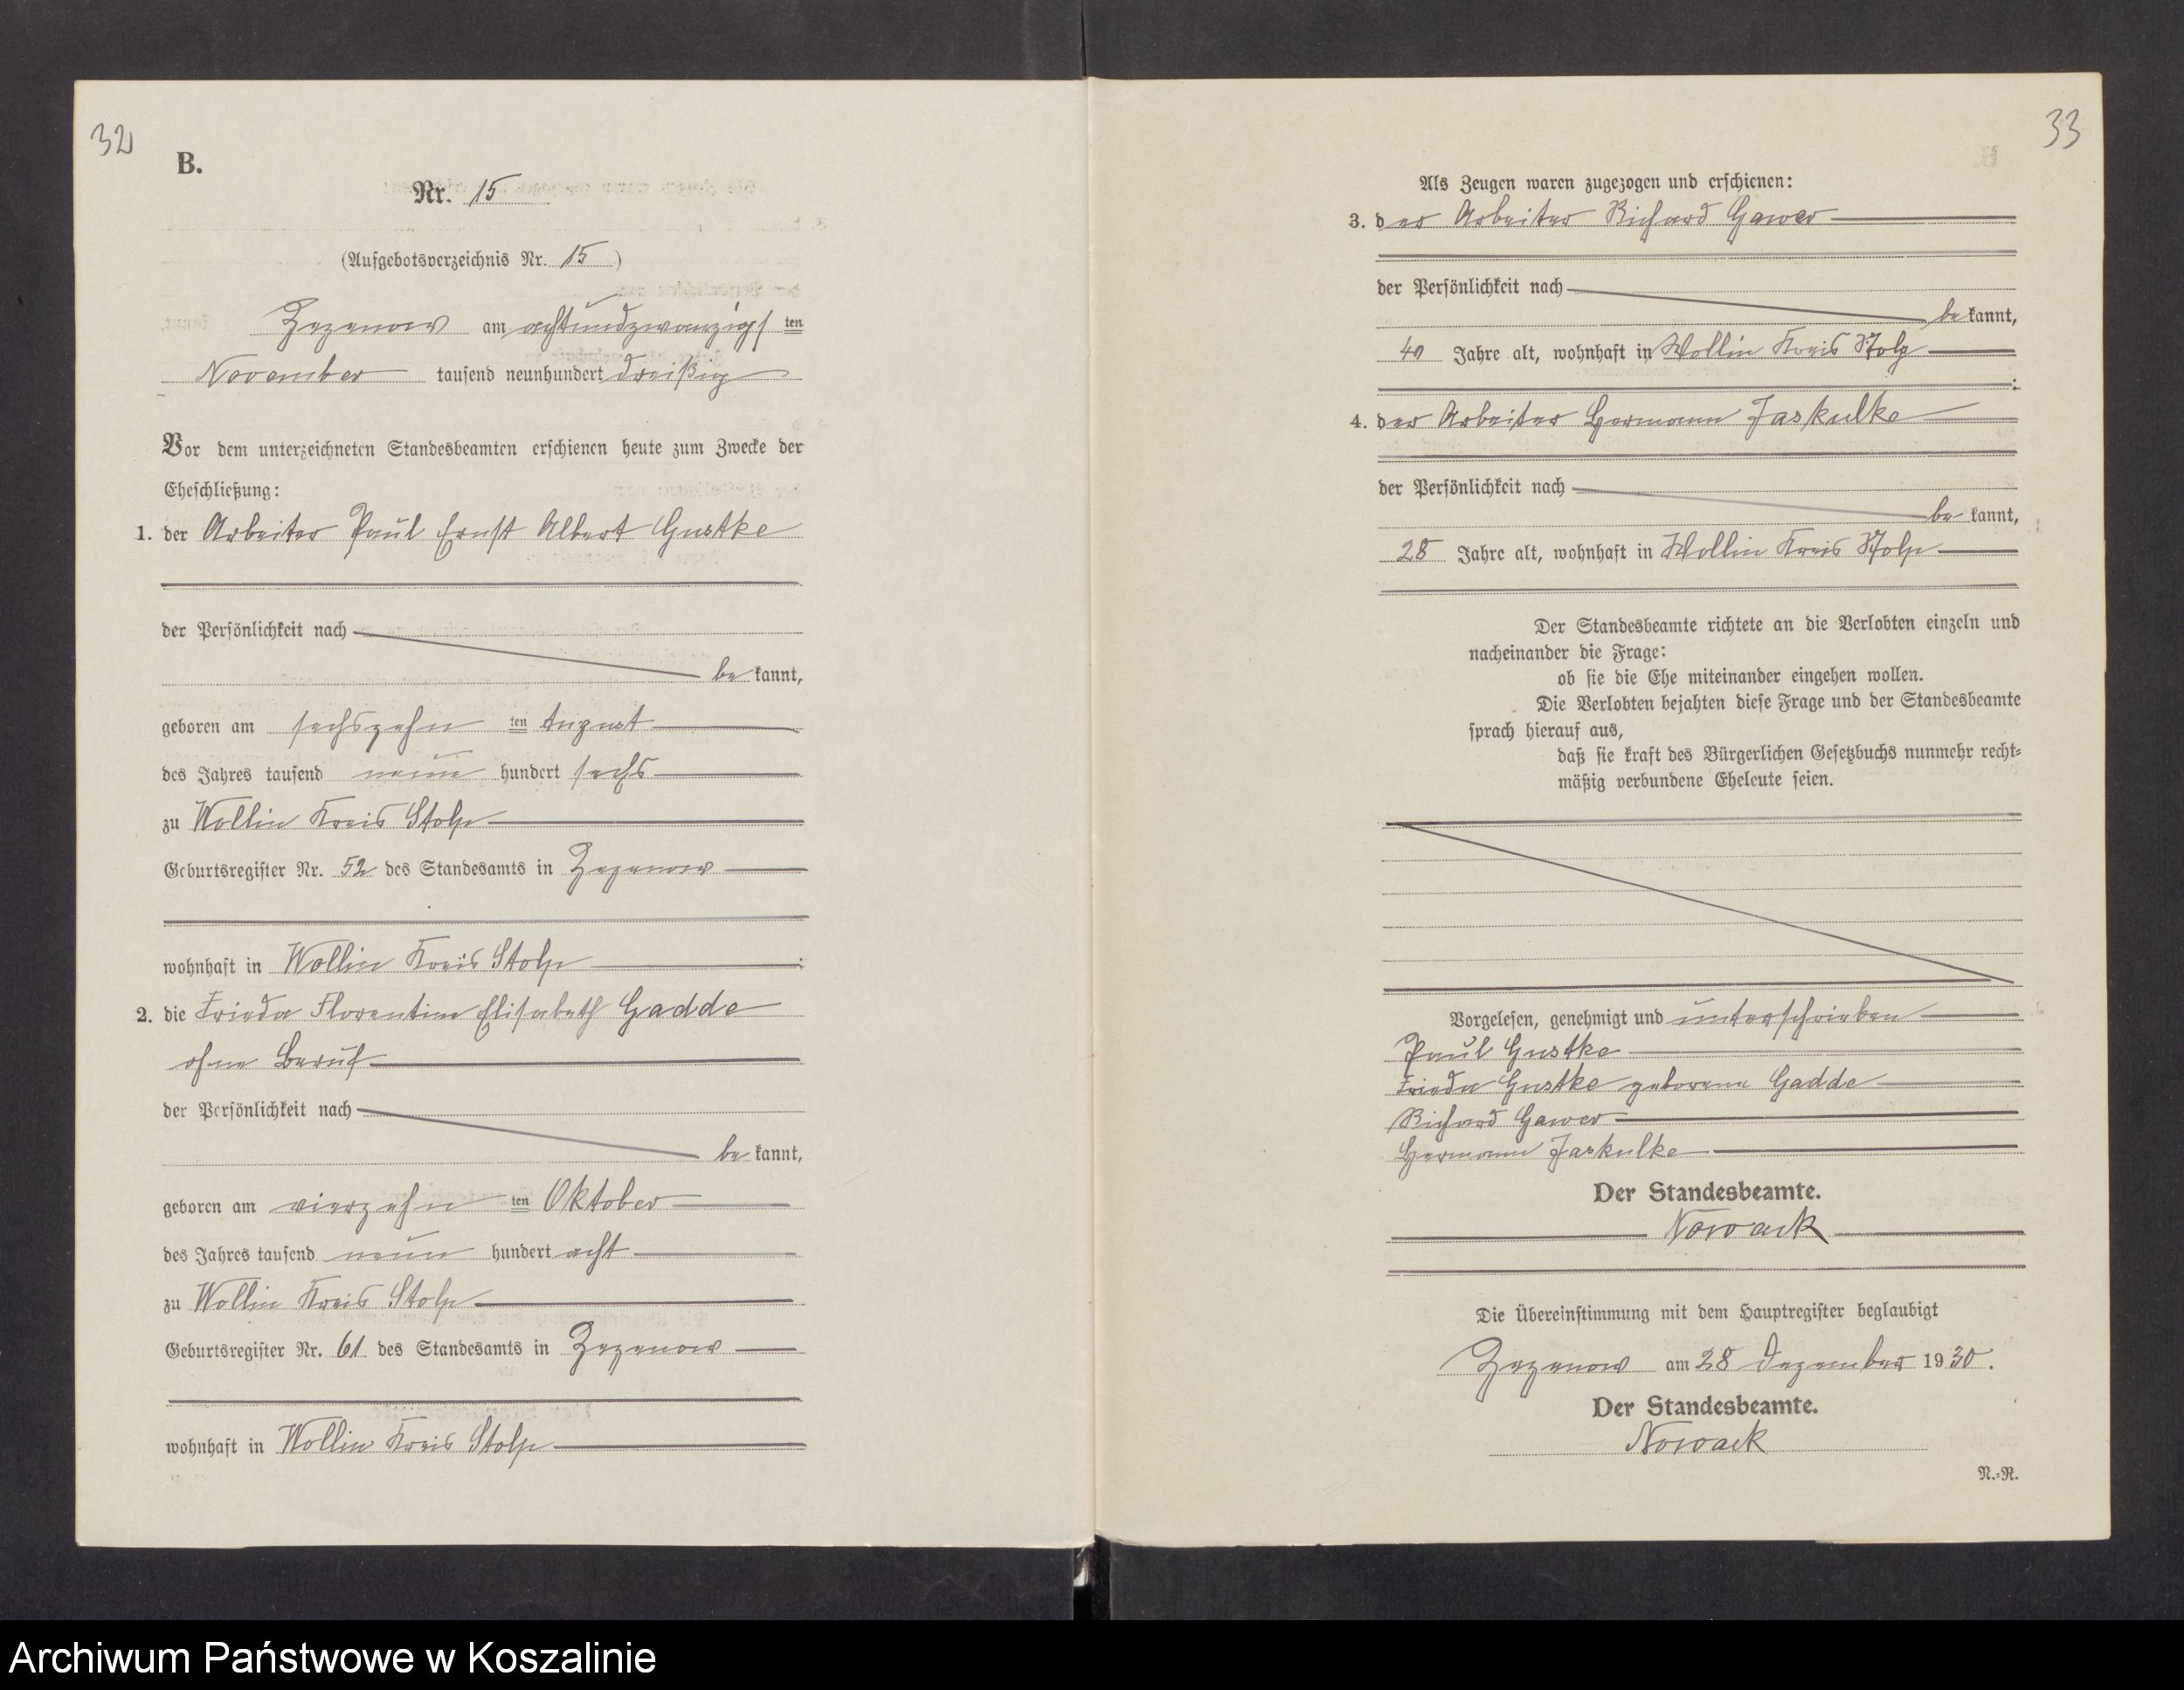 32
B.
Nr. 15
(Aufgebotsverzeichnis Nr. 15)
Zezenow am achtundzwanzigsten
November tausend neunhundert dreißig
Vor dem unterzeichneten Standesbeamten erschienen heute zum Zwecke der
Eheschließung:
1. der Arbeiter Paul Ernst Albert Gustke
der Persönlichkeit nach
be kannt,
geboren am sechszehn ten August
des Jahres tausend neun hundert sechs
zu Wollin Kreis Stolp
Geburtsregister Nr. 52 des Standesamts in Zezenow
wohnhaft in Wollin Kreis Stolp ;
2. die Frieda Florentine Elisabeth Gadde
ohne Beruf
der Persönlichkeit nach
be kannt,
geboren am vierzehn ten Oktober
des Jahres tausend neun hundert acht
zu Wollin Kreis Stolp
Geburtsregister Nr. 61 des Standesamts in Zezenow
wohnhaft in Wollin Kreis Stolp
33
Als Zeugen waren zugezogen und erschienen:
3. der Arbeiter Richard Gawer
der Persönlichkeit nach
be kannt,
40 Jahre alt, wohnhaft in Wollin Kreis Stolp
;
4. der Arbeiter Hermann Jaskulke
der Persönlichkeit nach
be kannt,
28 Jahre alt, wohnhaft in Wollin Kreis Stolp
Der Standesbeamte richtete an die Verlobten einzeln und
nacheinander die Frage:
ob sie die Ehe miteinander eingehen wollen.
Die Verlobten bejahten diese Frage und der Standesbeamte
sprach hierauf aus,
daß sie kraft des Bürgerlichen Gesetzbuchs nunmehr recht-
mäßig verbundene Eheleute seien.
Vorgelesen, genehmigt und unterschrieben
Paul Gustke
Frieda Gustke geborene Gadde
Richard Gawer
Hermann Jaskulke
Der Standesbeamte.
Nowack
Die Übereinstimmung mit dem Hauptregister beglaubigt
Zezenow am 28 Dezember 1930.
Der Standesbeamte.
Nowack
N.-R.
Archiwum Państwowe w Koszalinie